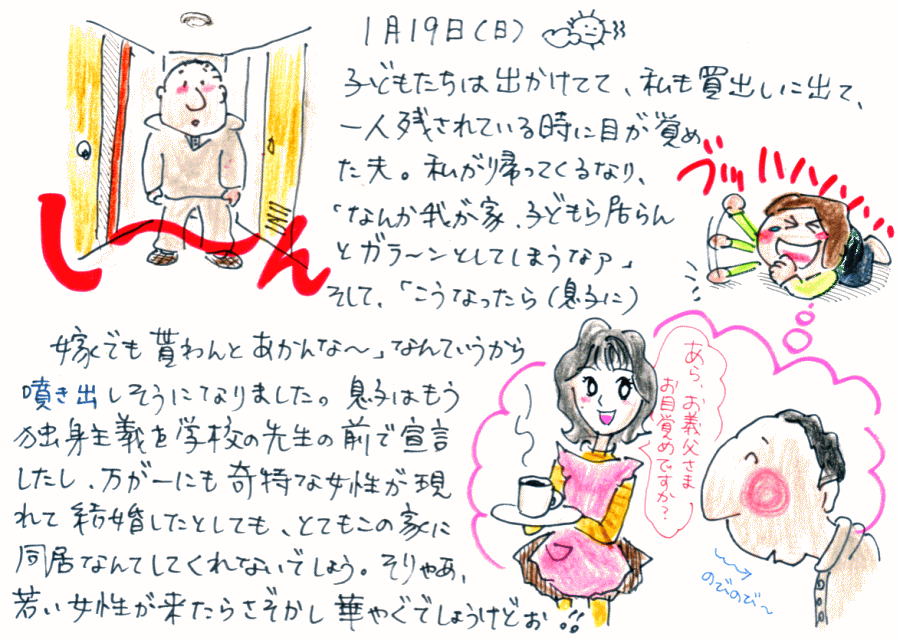 1月19日(日)
子どもたちは出かけてて、私も買出しに出て、
一人残されている時に目が覚め
た夫。私が帰ってくるなり、
「なんか我が家、子どもら居らん
とガラ〜ンとしてしまうなァ」
そして、「こうなったら(息子に)
嫁でも貰わんとあかんな〜」なんていうから
噴き出しそうになりました。息子はもう
独身主義を学校の先生の前で宣言
したし、万が一にも奇特な女性が現
れて結婚したとしても、とてもこの家に
同居なんてしてくれないでしょう。そりゃあ、
若い女性が来たらさぞかし華やぐでしょうけどぉ!!
し〜ん
ブッハハハハ
あら、お義父さま、
お目覚めですか?
のびのび〜